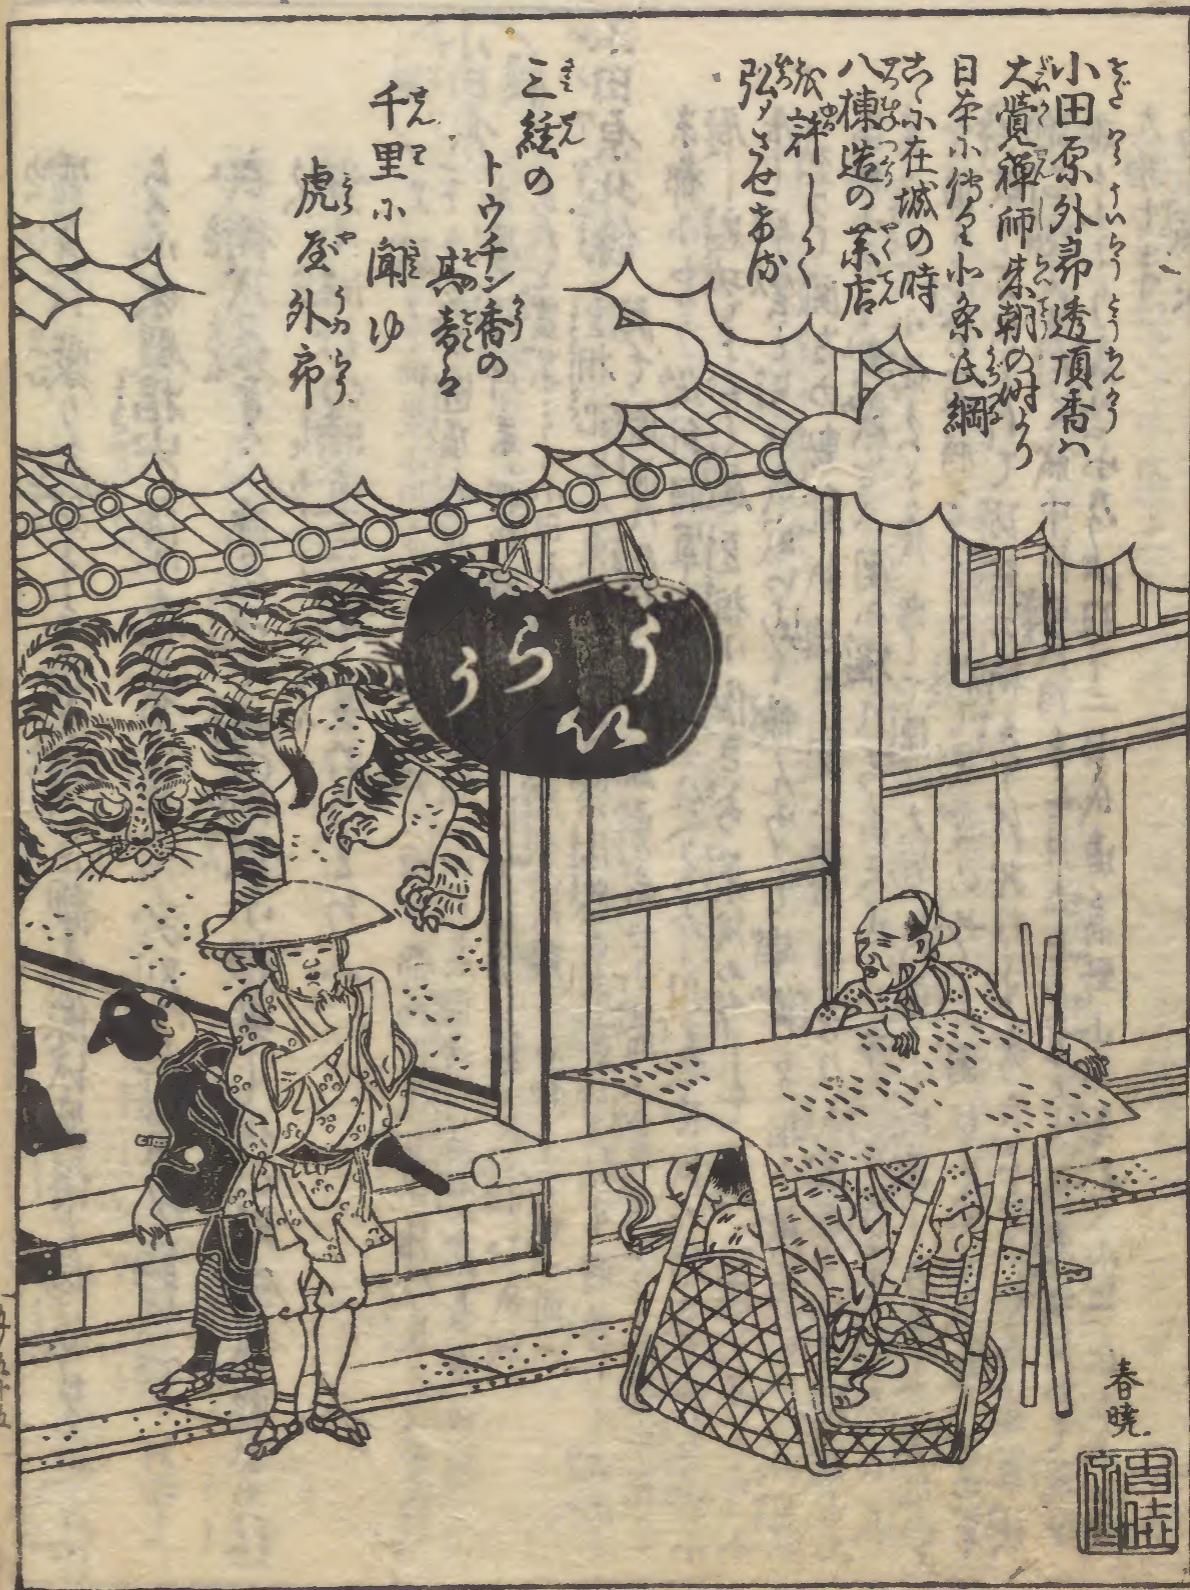 小田原外郎透頂香ハ
大覚禅師来朝の時より
日本に傳り北条氏綱
こゝに在城の時
八棟造の薬店
を許しく
弘めさせ
三絃の
トウチン香の
其音も
千里に聞ゆ
虎屋外郎
ういらう
春暁